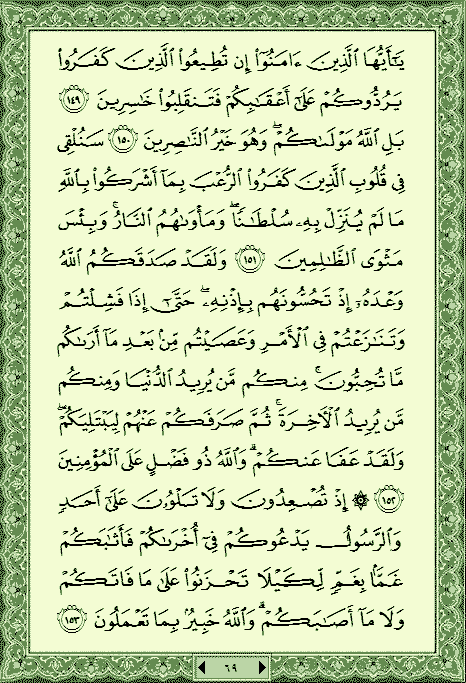 يَـٰٓأَيُّهَا ٱلَّذِينَ ءَامَنُوٓا۟ إِن تُطِيعُوا۟ ٱلَّذِينَ كَفَرُوا۟
يَرُدُّوكُمْ عَلَىٰٓ أَعْقَـٰبِكُمْ فَتَنقَلِبُوا۟ خَـٰسِرِينَ ١٤٩
بَلِ ٱللَّهُ مَوْلَىٰكُمْ ۖ وَهُوَ خَيْرُ ٱلنَّـٰصِرِينَ ١٥٠ سَنُلْقِى
فِى قُلُوبِ ٱلَّذِينَ كَفَرُوا۟ ٱلرُّعْبَ بِمَآ أَشْرَكُوا۟ بِٱللَّهِ
مَا لَمْ يُنَزِّلْ بِهِۦ سُلْطَـٰنًا ۖ وَمَأْوَىٰهُمُ ٱلنَّارُ ۚ وَبِئْسَ
مَثْوَى ٱلظَّـٰلِمِينَ ١٥١ وَلَقَدْ صَدَقَكُمُ ٱللَّهُ
وَعْدَهُۥٓ إِذْ تَحُسُّونَهُم بِإِذْنِهِۦ ۖ حَتَّىٰٓ إِذَا فَشِلْتُمْ
وَتَنَـٰزَعْتُمْ فِى ٱلْأَمْرِ وَعَصَيْتُم مِّنۢ بَعْدِ مَآ أَرَىٰكُم
مَّا تُحِبُّونَ ۚ مِنكُم مَّن يُرِيدُ ٱلدُّنْيَا وَمِنكُم
مَّن يُرِيدُ ٱلْـَٔاخِرَةَ ۚ ثُمَّ صَرَفَكُمْ عَنْهُمْ لِيَبْتَلِيَكُمْ ۖ
وَلَقَدْ عَفَا عَنكُمْ ۗ وَٱللَّهُ ذُو فَضْلٍ عَلَى ٱلْمُؤْمِنِينَ
١٥٢ ۞ إِذْ تُصْعِدُونَ وَلَا تَلْوُۥنَ عَلَىٰٓ أَحَدٍ
وَٱلرَّسُولُ يَدْعُوكُمْ فِىٓ أُخْرَىٰكُمْ فَأَثَـٰبَكُمْ
غَمًّۢا بِغَمٍّ لِّكَيْلَا تَحْزَنُوا۟ عَلَىٰ مَا فَاتَكُمْ
وَلَا مَآ أَصَـٰبَكُمْ ۗ وَٱللَّهُ خَبِيرٌۢ بِمَا تَعْمَلُونَ ١٥٣
٦٩